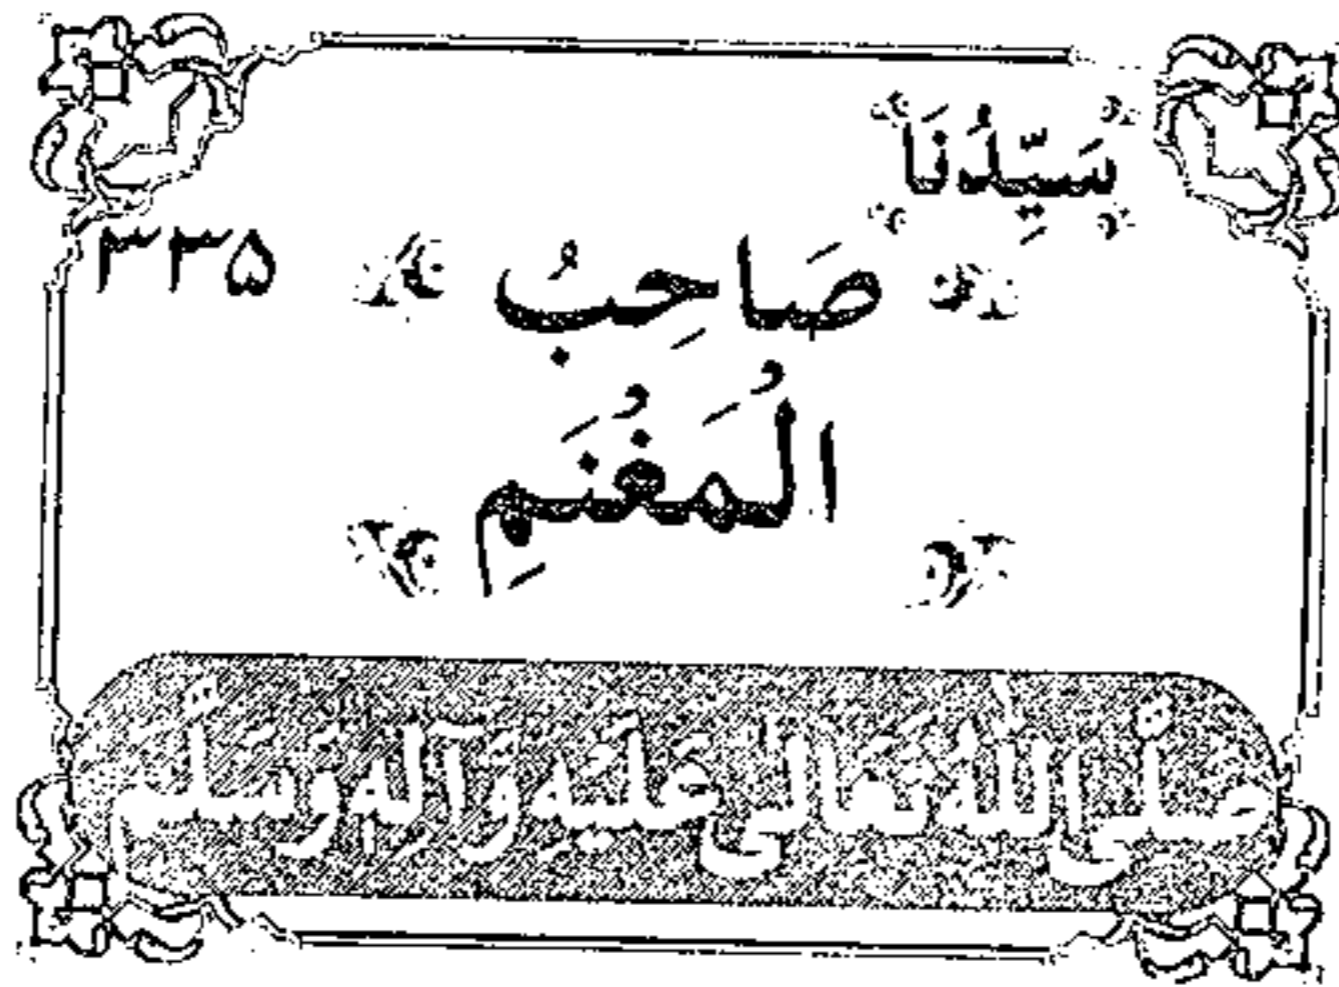 سَيِّدُنَا
صَاحِبُ
۳۳۵
الْمَغْنَمِ
صَلَّى اللهُ تَعَالَى عَلَيْهِ وَآلِهِ وَسَلَّمَ